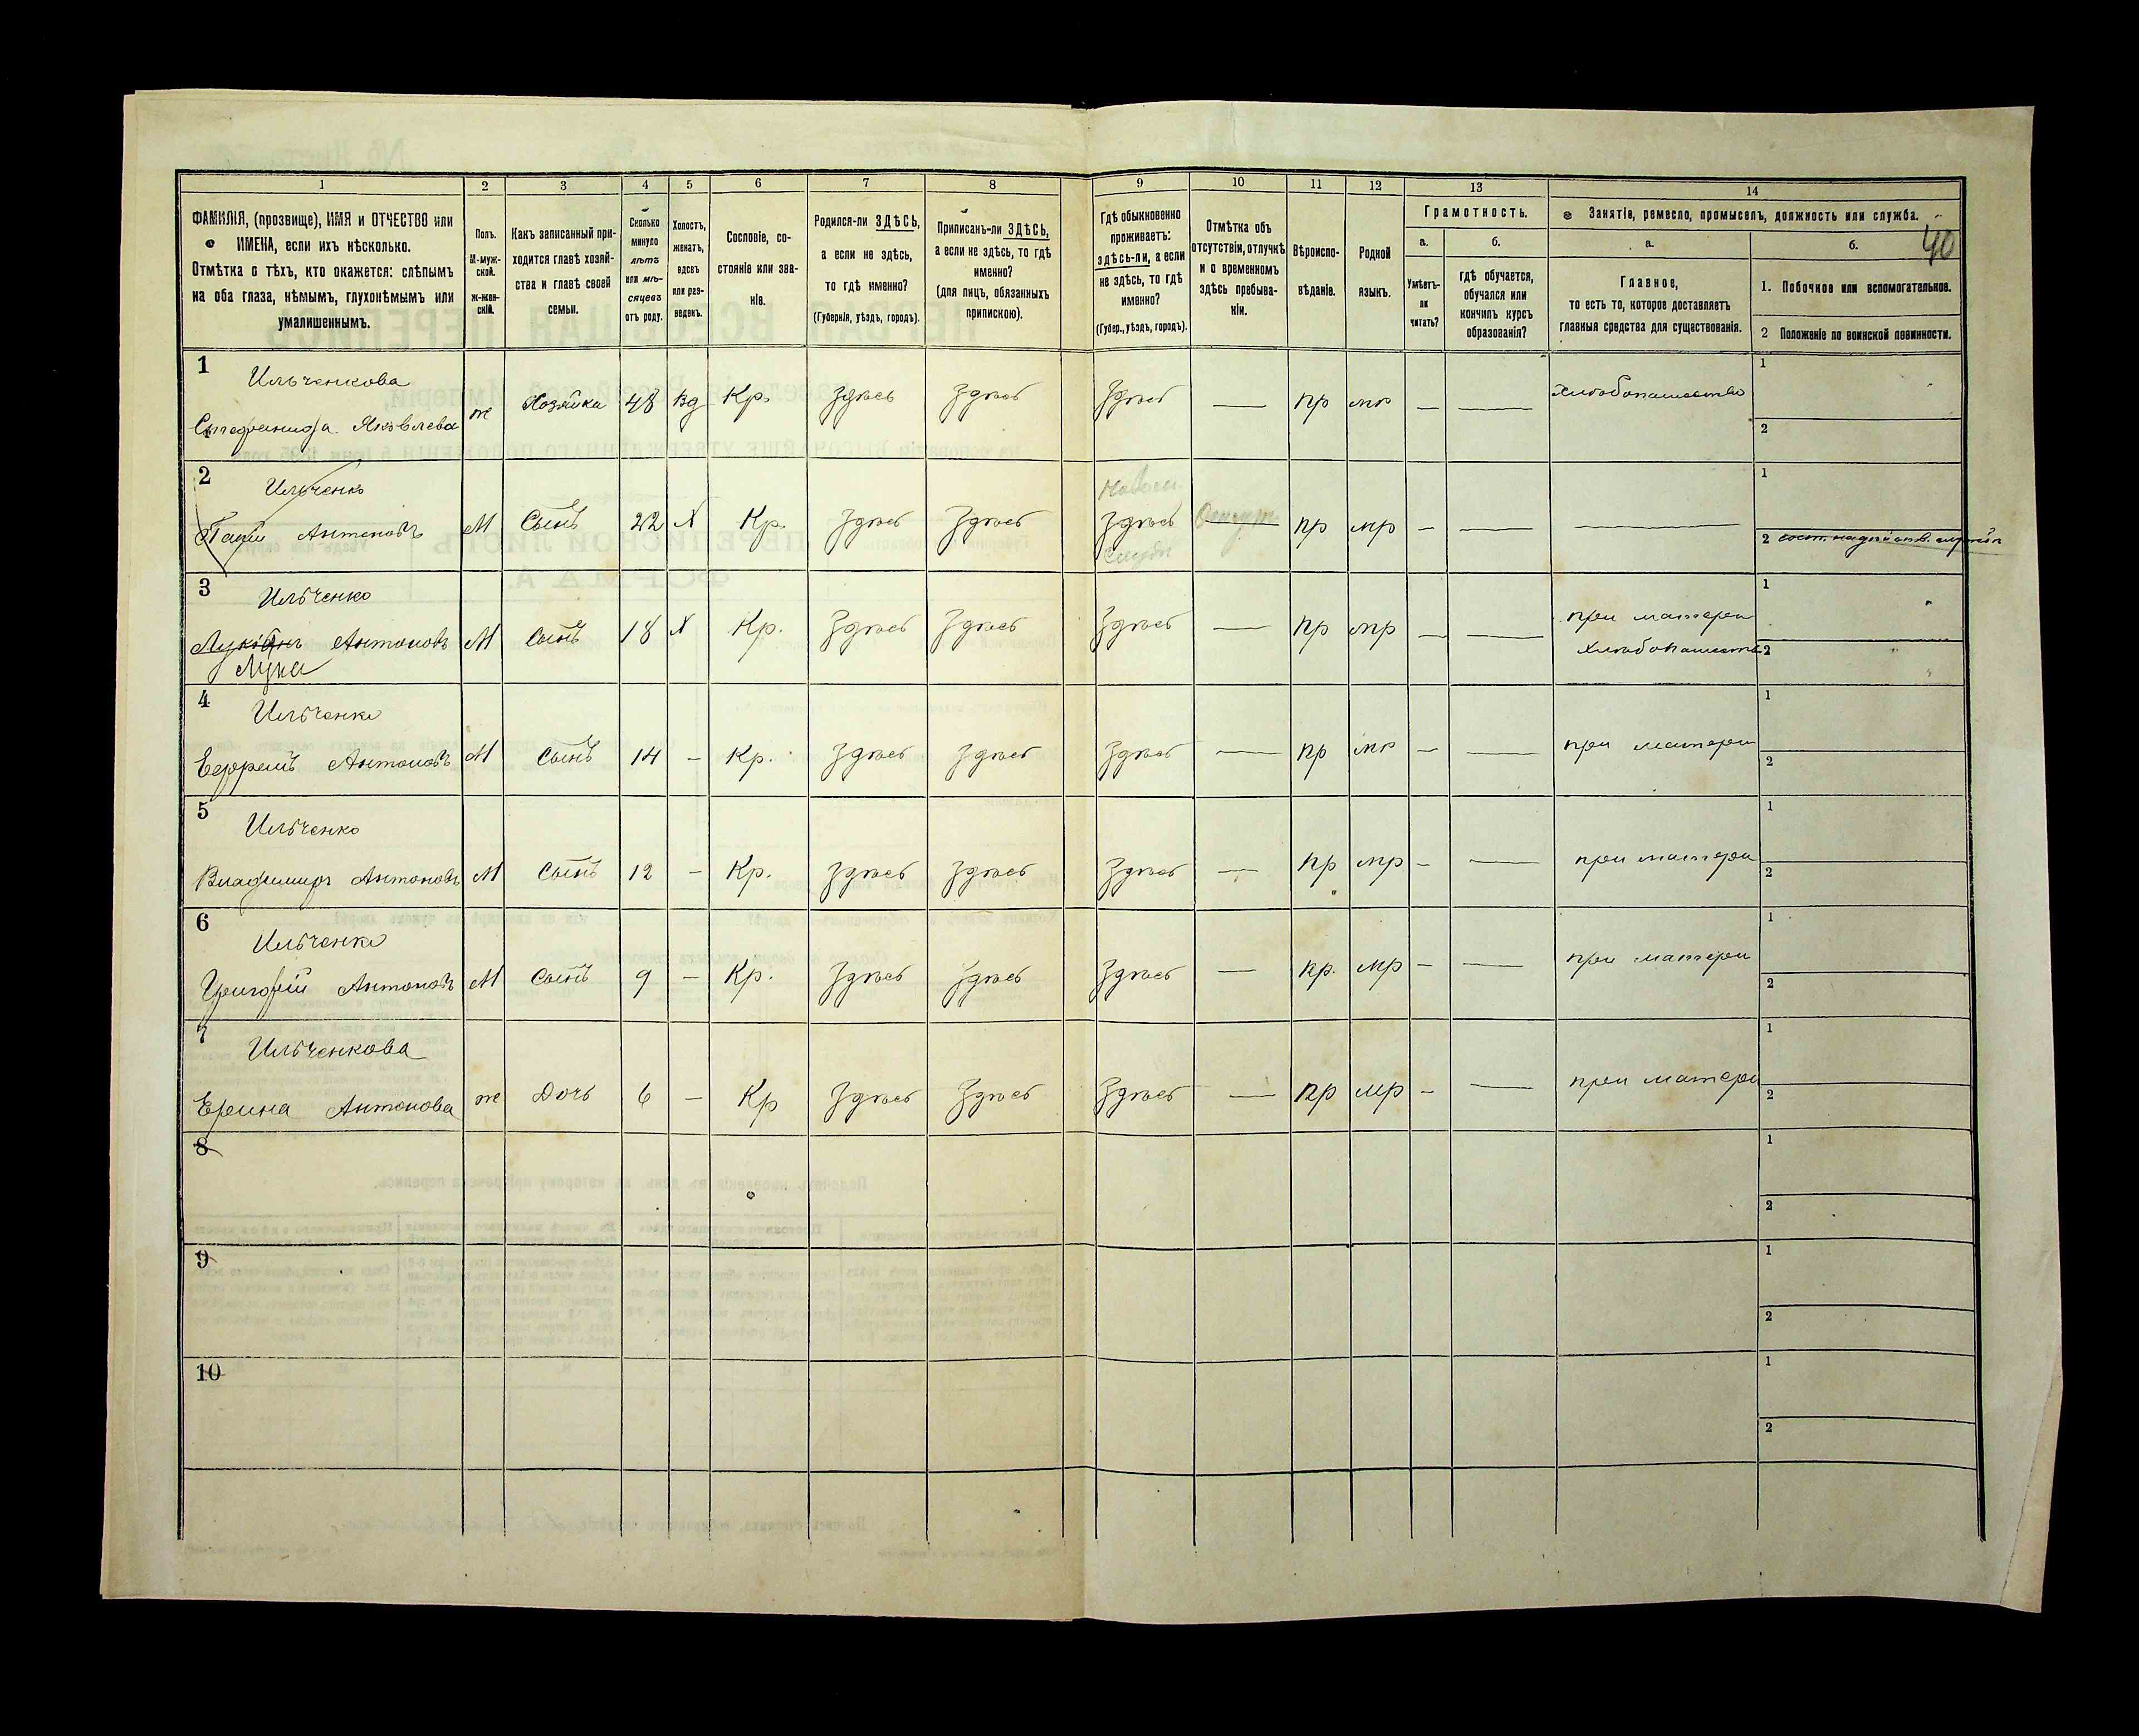 40
1 2 3 4 5 6 7 8 9 10 11 12 13 14
ФАМИЛІЯ, (прозвище), ИМЯ и ОТЧЕСТВО или
ИМЕНА, если ихъ нѣсколько.
Отмѣтка о тѣхъ, кто окажется: слѣпымъ
на оба глаза, нѣмымъ, глухонѣмымъ или
умалишеннымъ.
Полъ.
М-муж-
ской.
ж-жен-
скій.
Какъ записанный при-
ходится главѣ хозяй-
ства и главѣ своей
семьи.
Сколько
минуло
лѣтъ
или мѣ-
сяцевъ
отъ роду.
Холостъ,
женатъ,
вдовъ
или раз-
веденъ.
Сословіе, со-
стояніе или зва-
ніе.
Родился-ли ЗДѢСЬ,
а если не здѣсь,
то гдѣ именно?
(Губернія, уѣздъ, городъ).
Приписанъ-ли ЗДѢСЬ,
а если не здѣсь, то гдѣ
именно?
(для лицъ, обязанныхъ
припискою).
Гдѣ обыкновенно
проживаетъ:
здѣсь-ли, а если
не здѣсь, то гдѣ
именно?
(Губер., уѣздъ, городъ).
Отмѣтка объ
отсутствіи, отлучкѣ
и о временномъ
здѣсь пребыва-
ніи.
Вѣроиспо-
вѣданіе.
Родной
языкъ.
Грамотность.
а.
Умѣетъ-
ли
читать?
б.
гдѣ обучается,
обучался или
кончилъ курсъ
образованія?
Занятіе, ремесло, промыселъ, должность или служба.
а.
Главное,
то есть то, которое доставляетъ
главныя средства для существованія.
б.
1. Побочное или вспомогательное.
2 Положеніе по воинской повинности.
1 Ильченкова
Степанида Яковлева ж Хозяйка 48 вд Кр. Здѣсь Здѣсь Здѣсь — пр мр — — Хлѣбопашество 1
2
2 Ильченко
Антоновъ М Сынъ 22 Х Кр. Здѣсь Здѣсь Здѣсь — пр мр — — — 1
2
3 Ильченко
Лукіянъ Антоновъ М Сынъ 18 Х Кр. Здѣсь Здѣсь Здѣсь — пр мр — — при матери 1
Лука Хлѣбопашество 2
4 Ильченко
Ефремъ Антоновъ М Сынъ 14 — Кр. Здѣсь Здѣсь Здѣсь — пр мр — — при матери 1
2
5 Ильченко
Владимиръ Антоновъ М Сынъ 12 — Кр. Здѣсь Здѣсь Здѣсь — пр мр — — при матери 1
2
6 Ильченко
Григорій Антоновъ М Сынъ 9 — Кр. Здѣсь Здѣсь Здѣсь — пр. мр — — при матери 1
2
7 Ильченкова
Ерина Антонова ж Дочь 6 — Кр Здѣсь Здѣсь Здѣсь — пр мр — — при матери 1
2
8 1
2
9 1
2
10 1
2